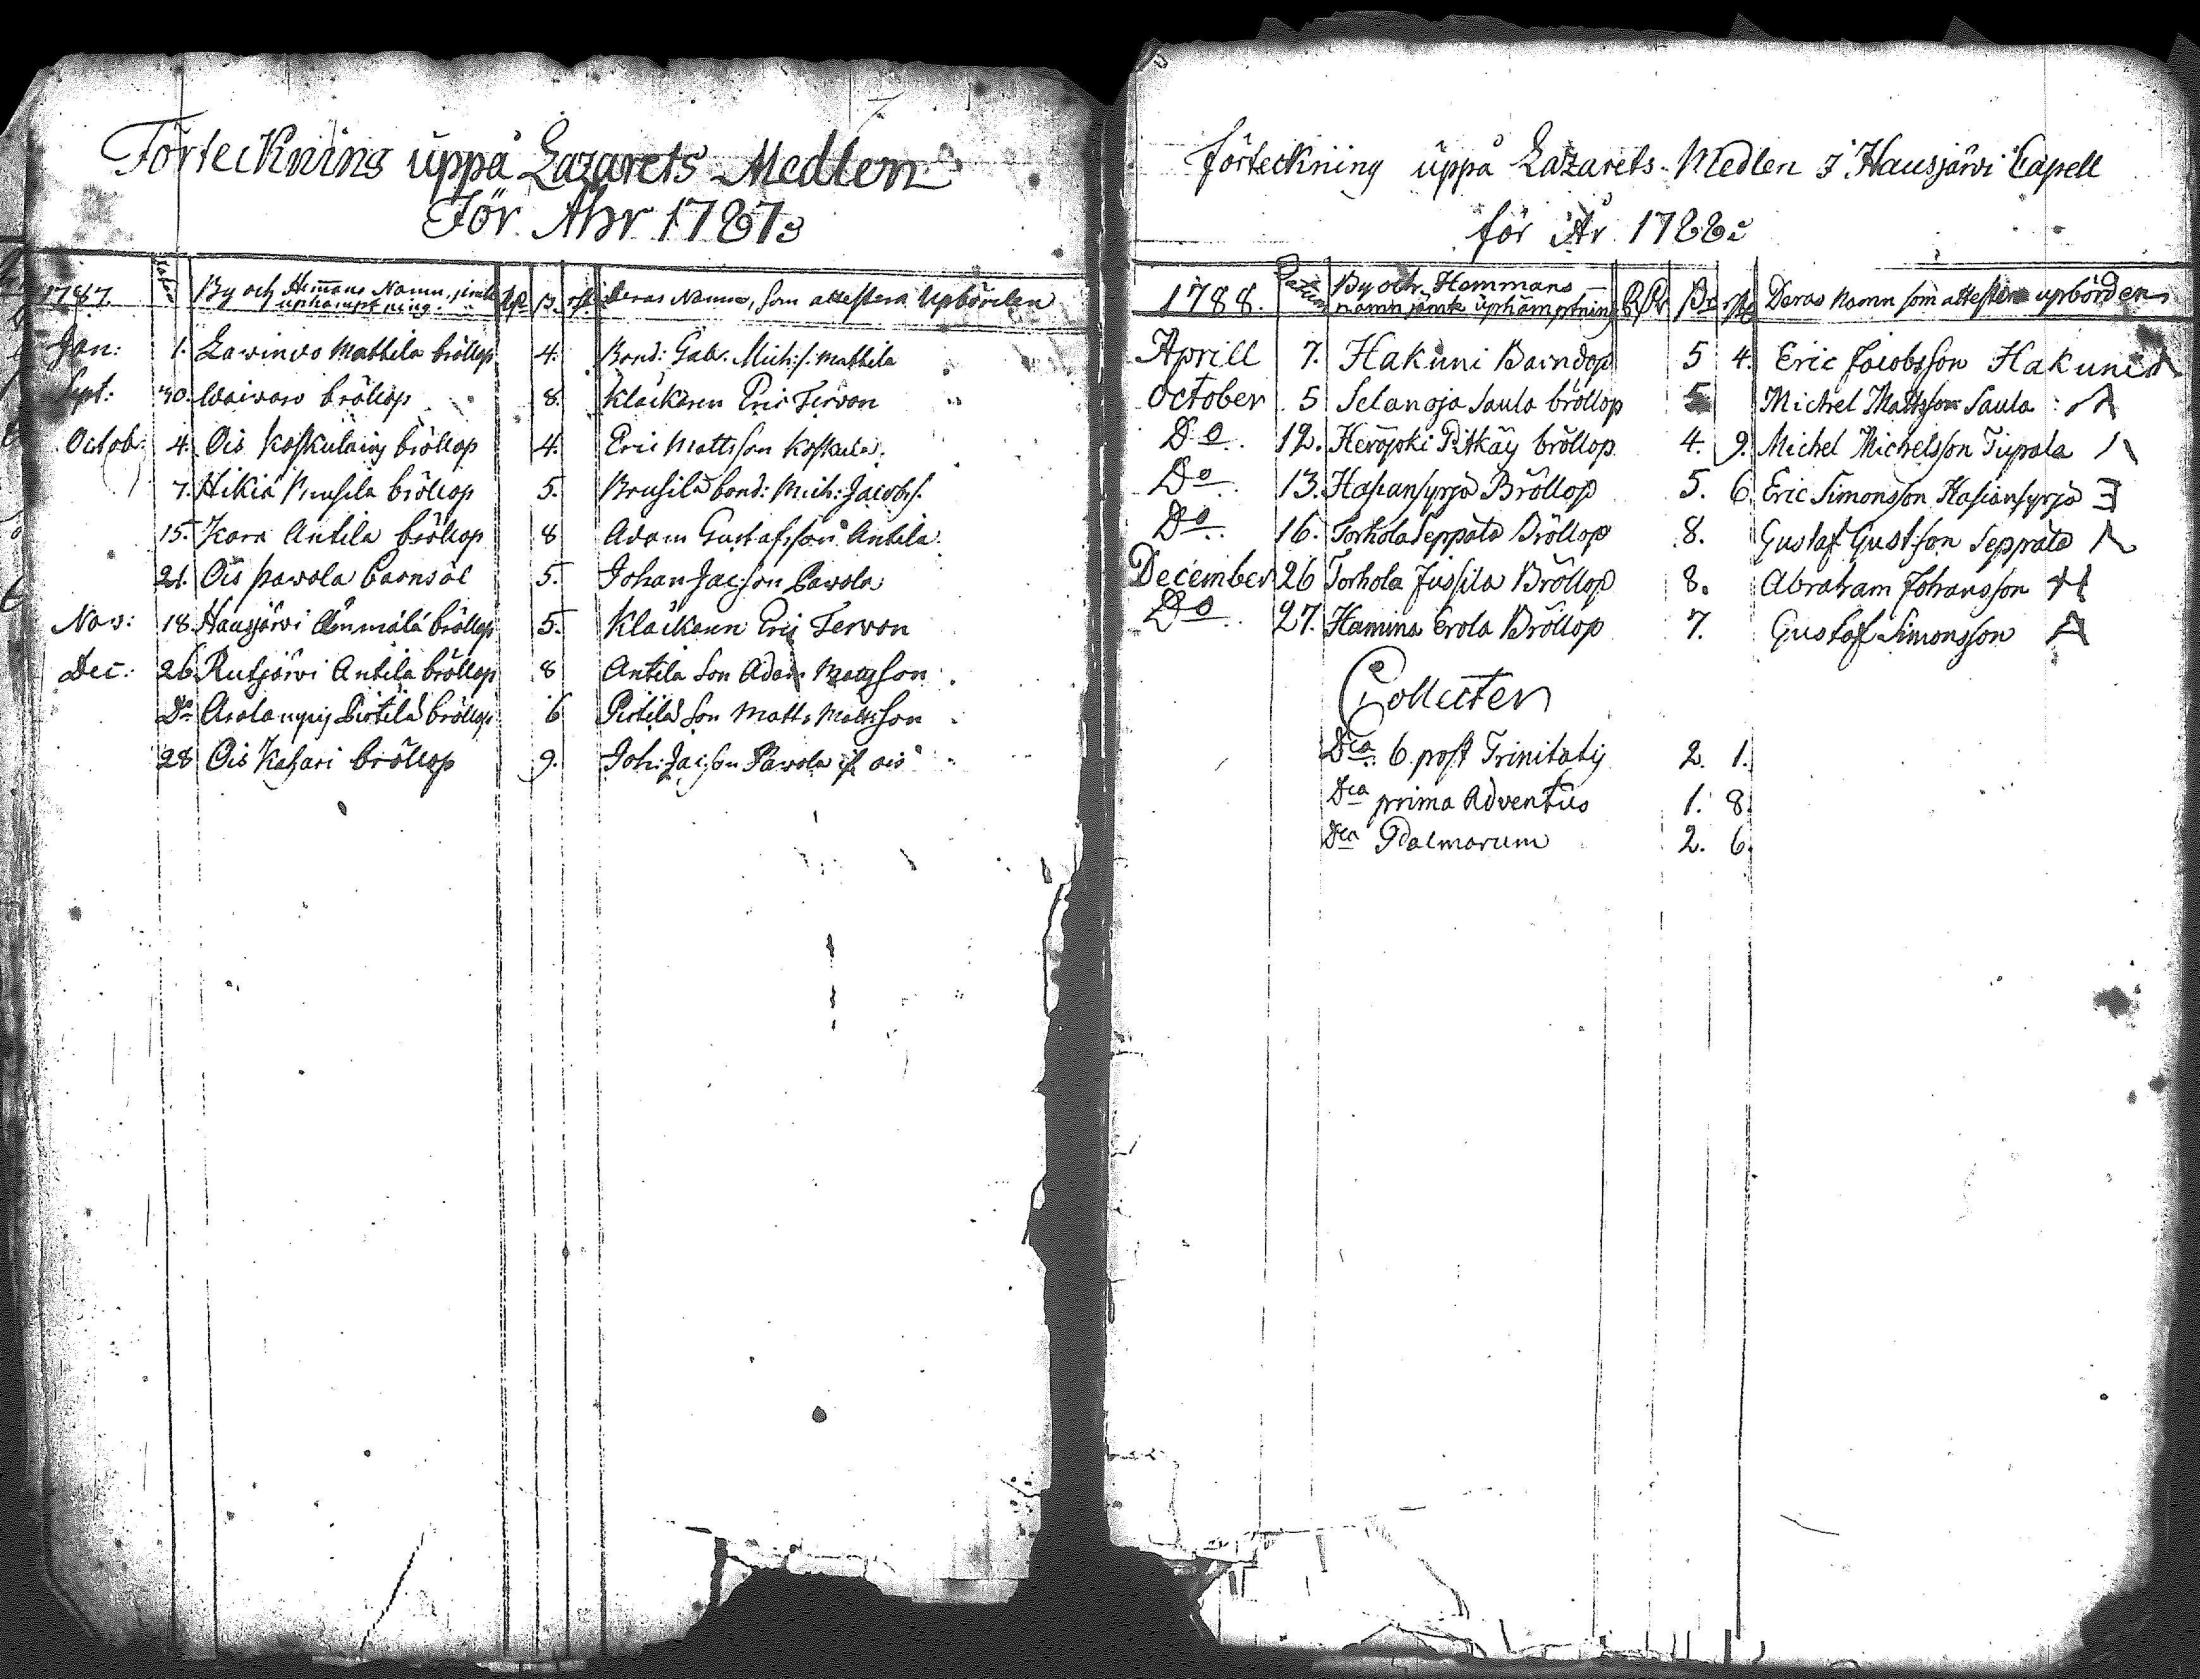 Förteckning uppå Lazarets Medlen
För Åhr 1787
1787 Datum By och Hemmans Namn, jemte uphämptning. Rdr β. rst. Deras Namn, som attestera Upbörden
Jan: 1. Lawinво Mattila bröllop 4. Bond: Gab. Mich:s. Mattila
Sept: 30. Waiwaro bröllop 8. Kläckaren Eric Tervon
Octob: 4. Ois Koskulain bröllop 4. Eric Mattsson Koskula.
7. Hikiä Brusila bröllop 5. Brusila bond: Mich: Jacobs.
15. Kara Antila bröllop 8 Adam Gustafsson Antila.
21. Ois Pavola barnsöl 5. Johan Jacsson Pavola
Nov: 18. Hausjärvi bröllop 5. Kläckaren Eric Tervon
Dec: 26 Rutjärvi Antila bröllop 8 Antila Son Adam Mattsson
Do Pirtilä bröllop 6 Pirtilä Son Matts Mattsson
28 Ois Kahari bröllop 9. Joh: Jacsson Pavola if. ois
Förteckning uppå Lazarets Medlen i Hausjärvi Capell
för År 1788
1788. Datum By och Hemmans namn jämte uphämptning Rdr β rst Deras Namn som attestera upbörden
Aprill 7. Hakuni Barndop 5 4. Eric Jacobsson Hakuni
October 5 Selanoja Saula bröllop 5 Michel Mattsson Saula
Do. 12. Heräjoki Pitkäy bröllop 4. 9. Michel Michelsson Tupala
Do. 13. Hasiansyrjä Bröllop 5. 6. Eric Simonsson Hasiansyrjä
Do. 16. Torhola Seppälä Bröllop 8. Gustaf Gustsson Seppälä
December 26 Torhola Jussila Bröllop 8. Abraham Johansson
Do. 27. Hamina Erola Bröllop 7. Gustaf Simonsson
Collecter
Dca 6 post Trinitatis 2. 1.
Dca prima Adventus 1. 8.
Dca Palmarum 2. 6.